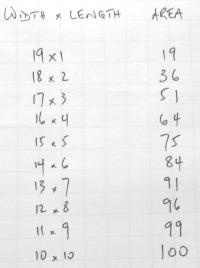 WIDTH x LENGTH AREA
19 x 1 19
18 x 2 36
17 x 3 51
16 x 4 64
15 x 5 75
14 x 6 84
13 x 7 91
12 x 8 96
11 x 9 99
10 x 10 100